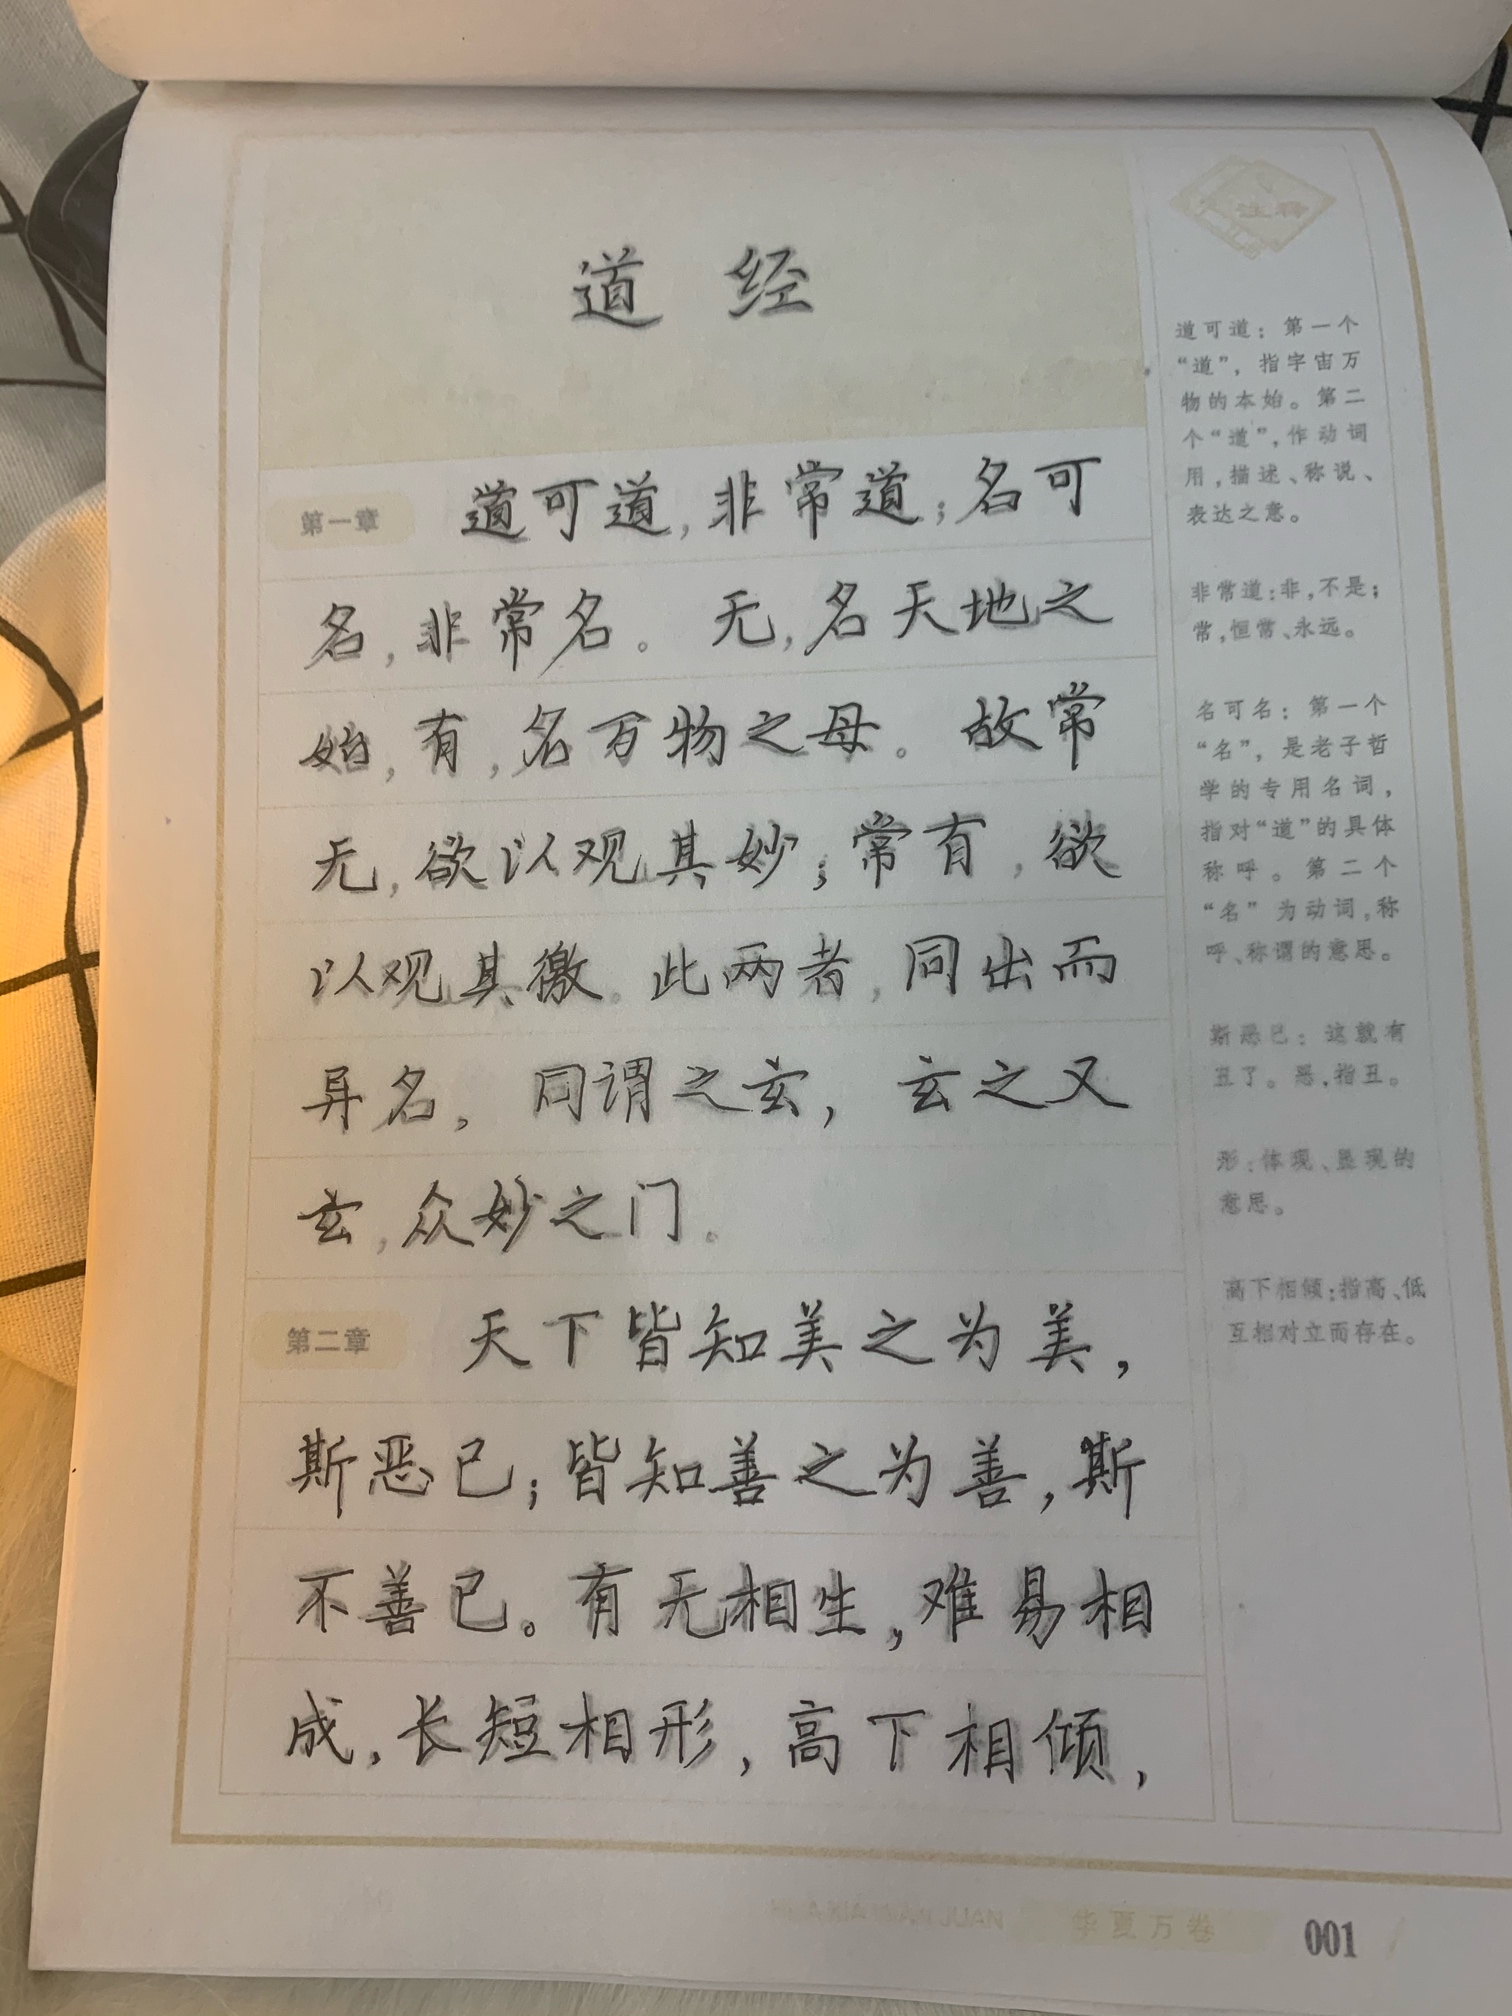 道经
第一章 道可道,非常道;名可
名,非常名。无,名天地之
始,有,名万物之母。故常
无,欲以观其妙;常有,欲
以观其徼。此两者,同出而
异名,同谓之玄,玄之又
玄,众妙之门。
第二章 天下皆知美之为美,
斯恶已;皆知善之为善,斯
不善已。有无相生,难易相
成,长短相形,高下相倾,
注释
道可道:第一个
“道”,指宇宙万
物的本始。第二
个“道”,作动词
用,描述、称说、
表达之意。
非常道:非,不是;
常,恒常、永远。
名可名:第一个
“名”,是老子哲
学的专用名词,
指对“道”的具体
称呼。第二个
“名”为动词,称
呼、称谓的意思。
斯恶已:这就有
丑了。恶,指丑。
形:体现、显现的
意思。
高下相倾:指高、低
互相对立而存在。
HUA XIA WAN JUAN 华夏万卷 001